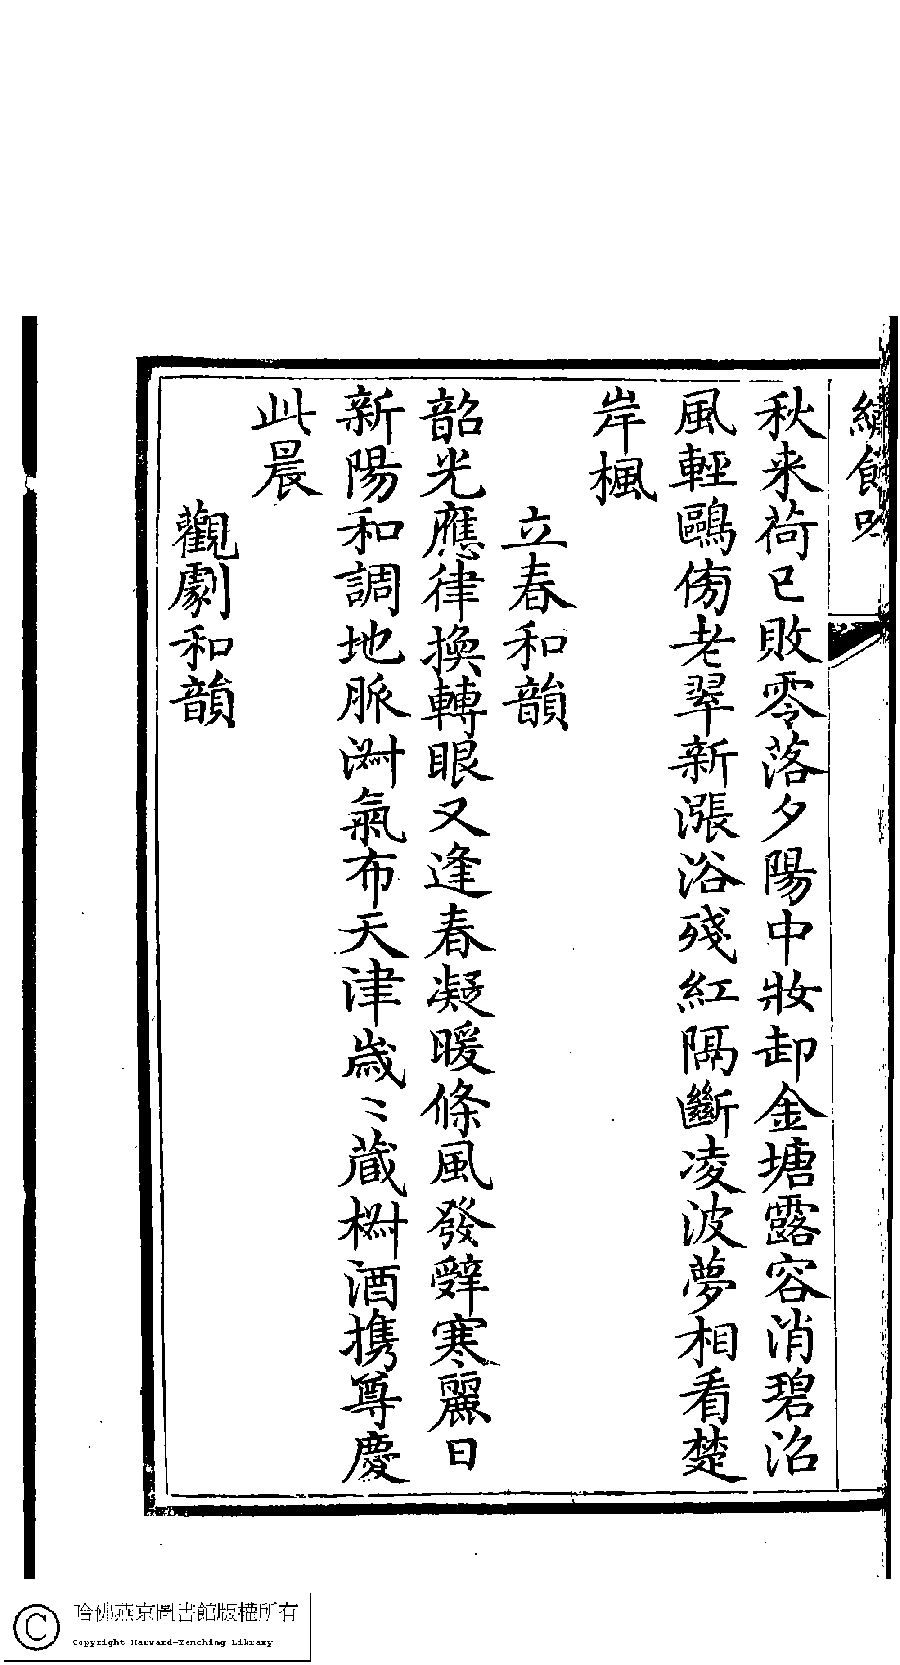 繡餘吟
秋来荷已敗零落夕陽中妝卸金塘露容消碧沼
風輕鷗傍老翠新漲浴殘紅隔斷凌波夢相看楚
岸楓
立春和韻
韶光應律換轉眼又逢春凝暖條風發辭寒麗日
新陽和調地脈淑氣布天津歲〻蔵椒酒携尊慶
此晨
觀劇和韻
哈佛燕京圖書館版權所有
Copyright Harvard-Yenching Library